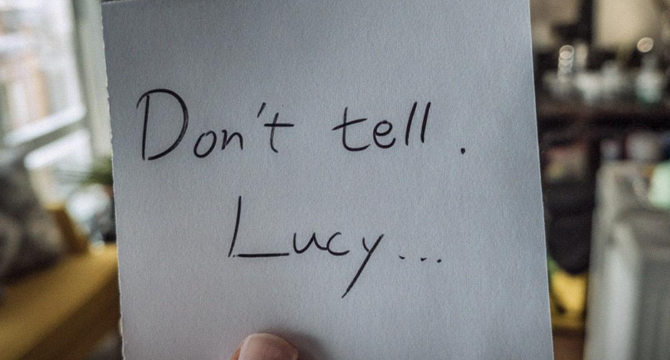 Don't tell.
Lucy...